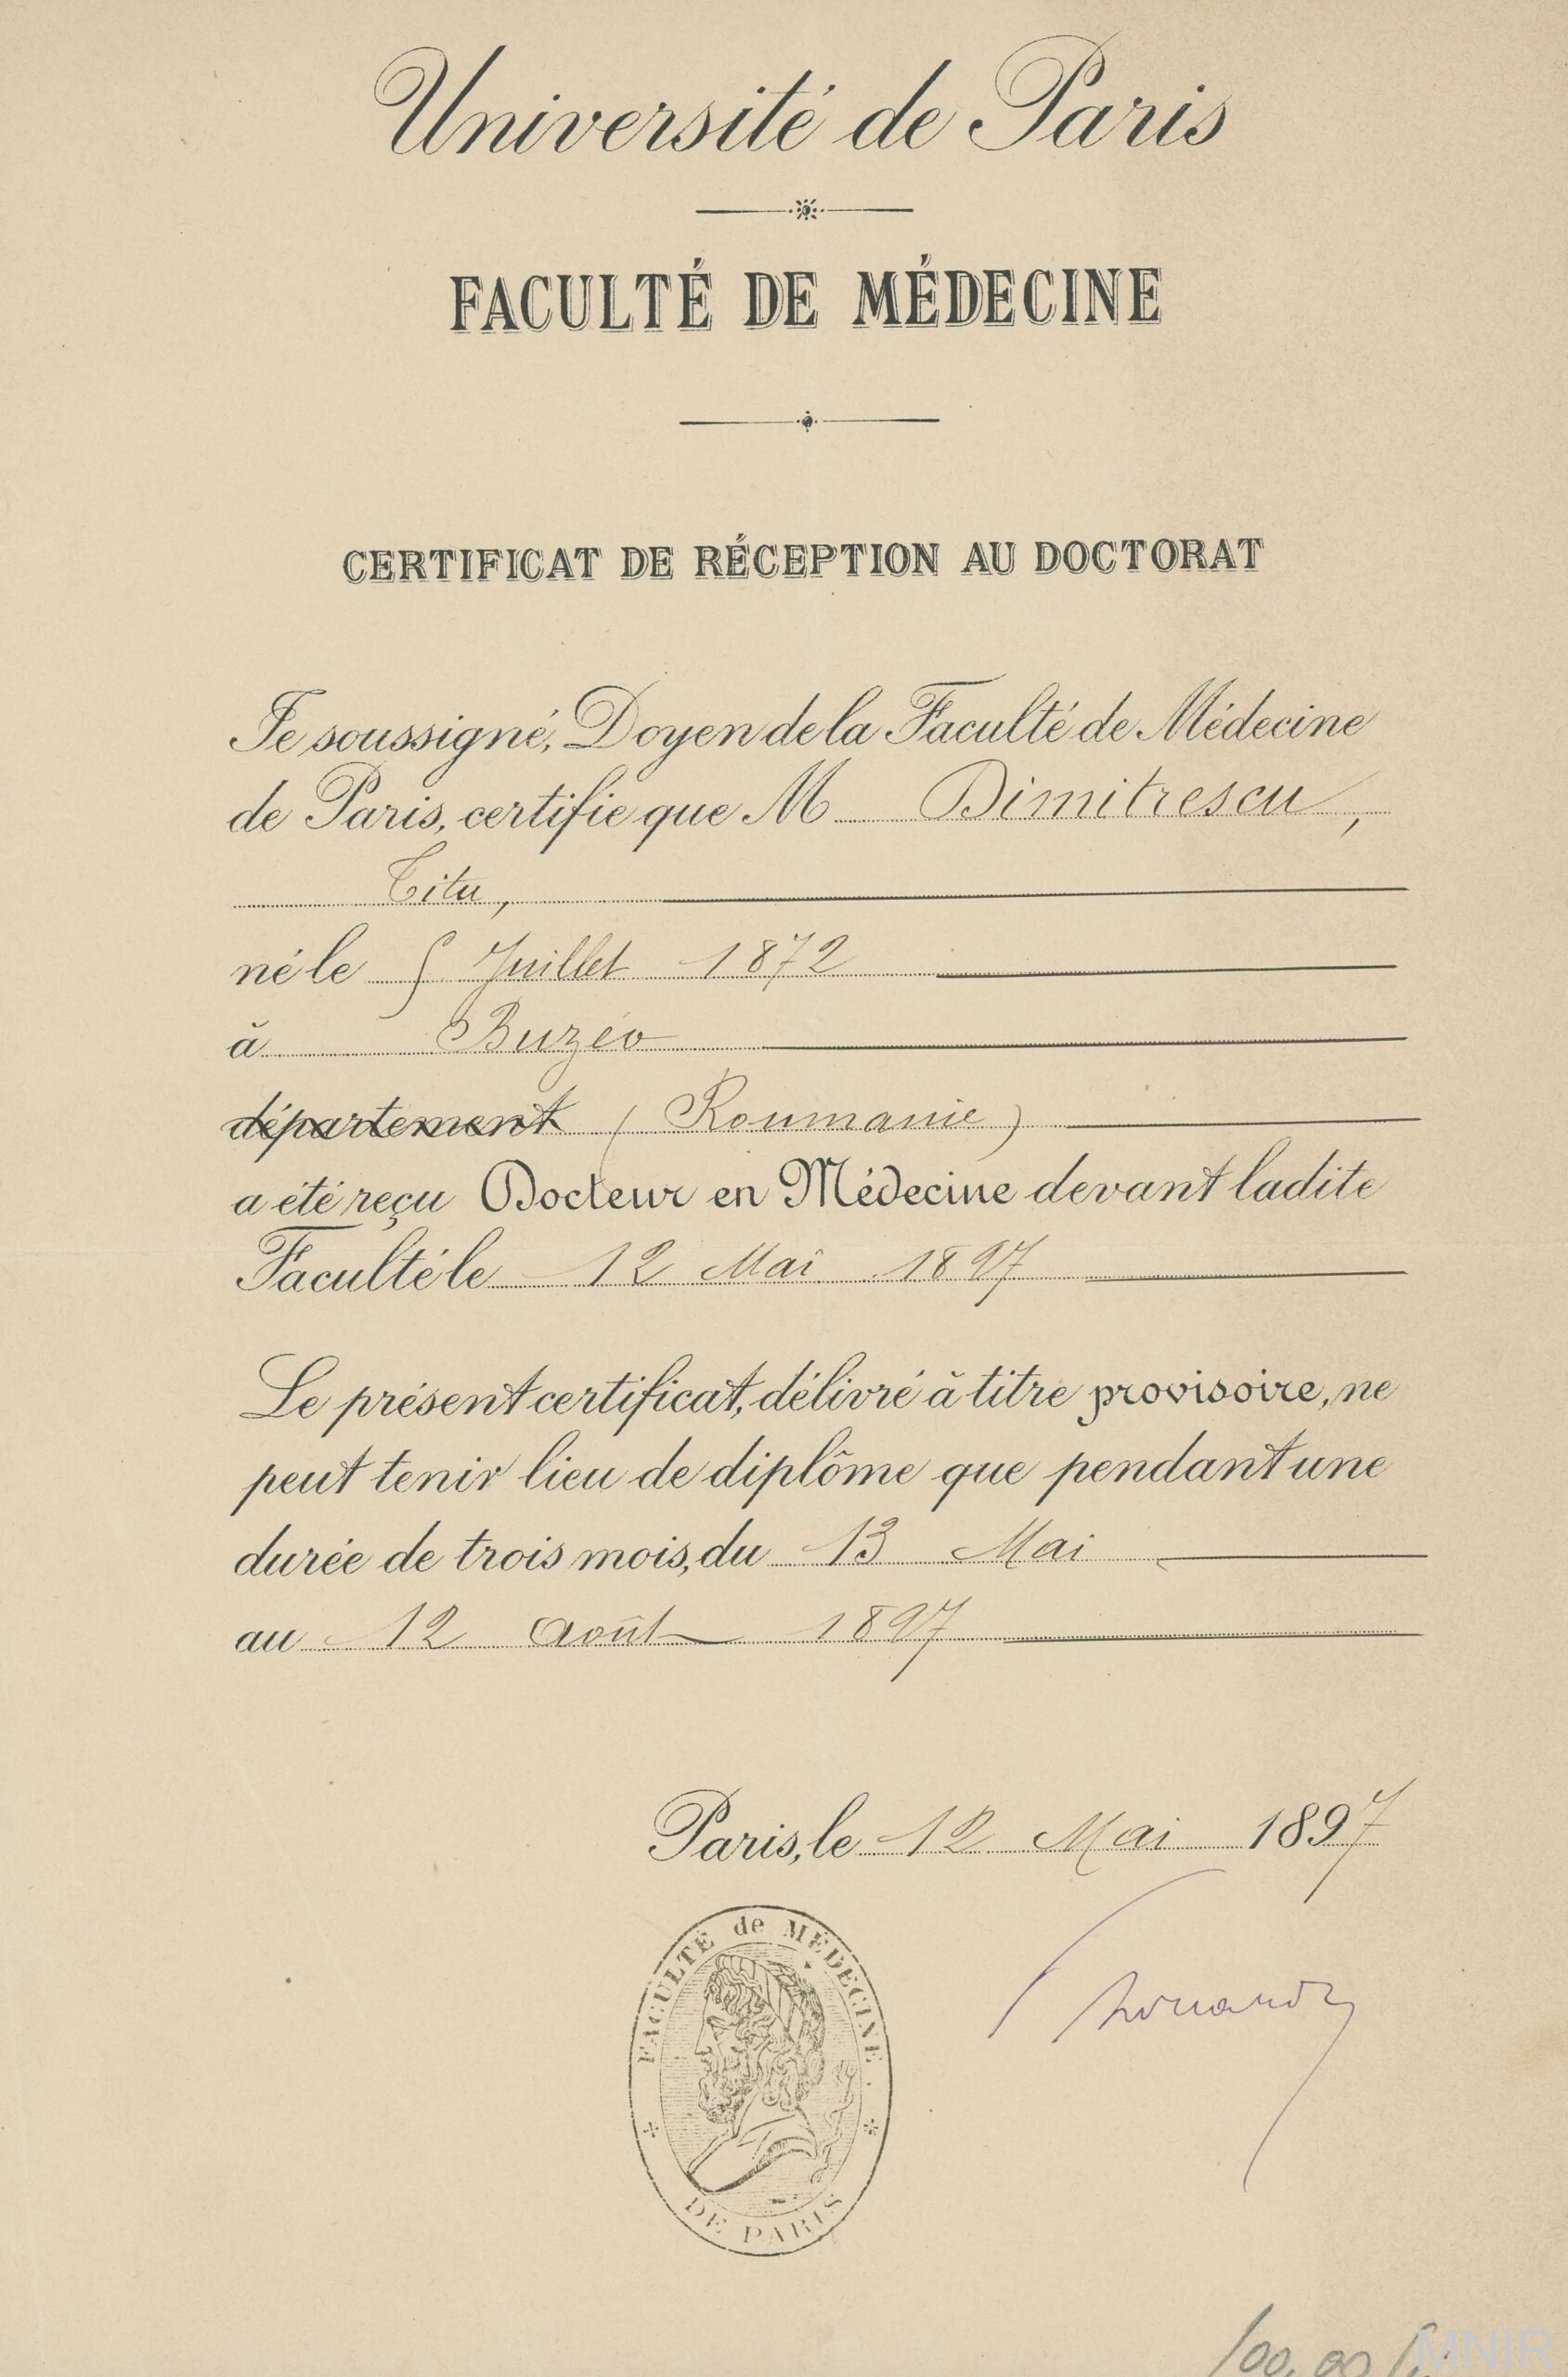 Université de Paris
FACULTÉ DE MÉDECINE
CERTIFICAT DE RÉCEPTION AU DOCTORAT
Je soussigné, Doyen de la Faculté de Médecine
de Paris, certifie que M Dimitrescu,
Titu,
né le Juillet 1872
à Buzéo
département (Roumanie)
a été reçu Docteur en Médecine devant ladite
Faculté le 12 Mai 1897
Le présent certificat, délivré à titre provisoire, ne
peut tenir lieu de diplôme que pendant une
durée de trois mois, du 13 Mai
au 12 Août 1897
Paris, le 12 Mai 1897
FACULTÉ de MÉDECINE
DE PARIS
100,00
MNIR